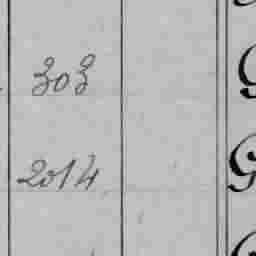 303
2014